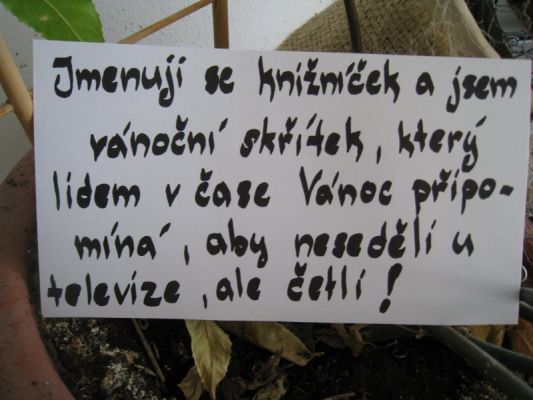 Jmenuji se knižníček a jsem
vánoční skřítek, který
lidem v čase Vánoc připo-
míná, aby neseděli u
televize, ale četli!